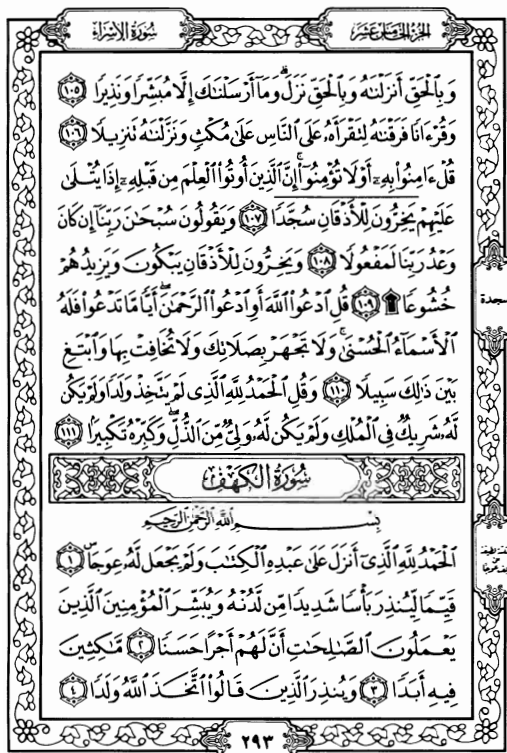 سُورَةُ الإِسْرَاء
الجُزْءُ الخَامِسَ عَشَرَ
وَبِٱلْحَقِّ أَنزَلْنَٰهُ وَبِٱلْحَقِّ نَزَلَ ۗ وَمَآ أَرْسَلْنَٰكَ إِلَّا مُبَشِّرًا وَنَذِيرًا ١٠٥
وَقُرْءَانًا فَرَقْنَٰهُ لِتَقْرَأَهُۥ عَلَى ٱلنَّاسِ عَلَىٰ مُكْثٍ وَنَزَّلْنَٰهُ تَنزِيلًا ١٠٦
قُلْ ءَامِنُوا۟ بِهِۦٓ أَوْ لَا تُؤْمِنُوٓا۟ ۚ إِنَّ ٱلَّذِينَ أُوتُوا۟ ٱلْعِلْمَ مِن قَبْلِهِۦٓ إِذَا يُتْلَىٰ
عَلَيْهِمْ يَخِرُّونَ لِلْأَذْقَانِ سُجَّدًا ١٠٧ وَيَقُولُونَ سُبْحَٰنَ رَبِّنَآ إِن كَانَ
وَعْدُ رَبِّنَا لَمَفْعُولًا ١٠٨ وَيَخِرُّونَ لِلْأَذْقَانِ يَبْكُونَ وَيَزِيدُهُمْ
خُشُوعًا ۩ ١٠٩ قُلِ ٱدْعُوا۟ ٱللَّهَ أَوِ ٱدْعُوا۟ ٱلرَّحْمَٰنَ ۖ أَيًّا مَّا تَدْعُوا۟ فَلَهُ
ٱلْأَسْمَآءُ ٱلْحُسْنَىٰ ۚ وَلَا تَجْهَرْ بِصَلَاتِكَ وَلَا تُخَافِتْ بِهَا وَٱبْتَغِ
بَيْنَ ذَٰلِكَ سَبِيلًا ١١٠ وَقُلِ ٱلْحَمْدُ لِلَّهِ ٱلَّذِى لَمْ يَتَّخِذْ وَلَدًا وَلَمْ يَكُن
لَّهُۥ شَرِيكٌ فِى ٱلْمُلْكِ وَلَمْ يَكُن لَّهُۥ وَلِىٌّ مِّنَ ٱلذُّلِّ ۖ وَكَبِّرْهُ تَكْبِيرًۢا ١١١
سُورَةُ الكَهْفِ
بِسْمِ ٱللَّهِ ٱلرَّحْمَٰنِ ٱلرَّحِيمِ
ٱلْحَمْدُ لِلَّهِ ٱلَّذِىٓ أَنزَلَ عَلَىٰ عَبْدِهِ ٱلْكِتَٰبَ وَلَمْ يَجْعَل لَّهُۥ عِوَجَا ۜ ١
قَيِّمًا لِّيُنذِرَ بَأْسًا شَدِيدًا مِّن لَّدُنْهُ وَيُبَشِّرَ ٱلْمُؤْمِنِينَ ٱلَّذِينَ
يَعْمَلُونَ ٱلصَّٰلِحَٰتِ أَنَّ لَهُمْ أَجْرًا حَسَنًا ٢ مَّٰكِثِينَ
فِيهِ أَبَدًا ٣ وَيُنذِرَ ٱلَّذِينَ قَالُوا۟ ٱتَّخَذَ ٱللَّهُ وَلَدًا ٤
سجدة
٢٩٣